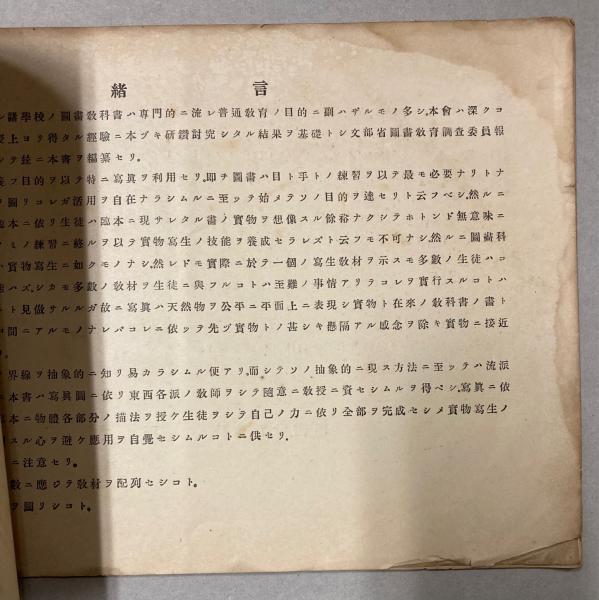 緒言
諸學校ノ圖畫敎科書ハ專門的ニ流レ普通敎育ノ目的ニ副ハザルモノ多シ、本會ハ深クコ
上ヨリ得タル經驗ニ本ヅキ硏鑽討究シタル結果ヲ基礎トシ文部省圖畫敎育調査委員報
シテ玆ニ本書ヲ編纂セリ。
フ目的ヲ以テ特ニ寫眞ヲ利用セリ、卽チ圖畫ハ目ト手トノ練習ヲ以テ最モ必要ナリトナ
ヲ圖リコレガ活用ヲ自在ナラシムルニ至ツテ始メテソノ目的ヲ達セリト云フベシ、然ルニ
臨本ニ依リ生徒ハ臨本ニ現サレタル畫ノ實物ヲ想像スル餘裕ナクシテホトンド無意味ニ
ノミノ練習ニ終ルヲ以テ實物寫生ノ技能ヲ養成セラレズト云フモ不可ナシ、然ルニ圖畫科
ハ實物寫生ニ如クモノナシ、然レドモ實際ニ於テ一個ノ寫生敎材ヲ示スモ多數ノ生徒ハコ
能ハズ、シカモ多數ノ敎材ヲ生徒ニ與フルコトハ至難ノ事情アリテコレヲ實行スルコトハ
ト見傚サルルガ故ニ寫眞ハ天然物ヲ公平ニ平面上ニ表現シ實物ト在來ノ敎科書ノ畫ト
間ニアルモノナレバコレニ依ツテ先ヅ實物トノ甚シキ懸隔アル感念ヲ除キ實物ニ接近
界線ヲ抽象的ニ知リ易カラシムル便アリ、而シテソノ抽象的ニ現ス方法ニ至ツテハ流派
本書ハ寫眞圖ニ依リ東西各派ノ敎師ヲシテ隨意ニ敎授ニ資セシムルヲ得ベシ、寫眞ニ依
本ニ物體各部分ノ描法ヲ授ケ生徒ヲシテ自己ノ力ニ依リ全部ヲ完成セシメ實物寫生ノ
スル心ヲ避ケ應用ヲ自覺セシムルコトニ供セリ。
ニ注意セリ。
數ニ應ジテ敎材ヲ配列セシコト。
ヲ圖リシコト。